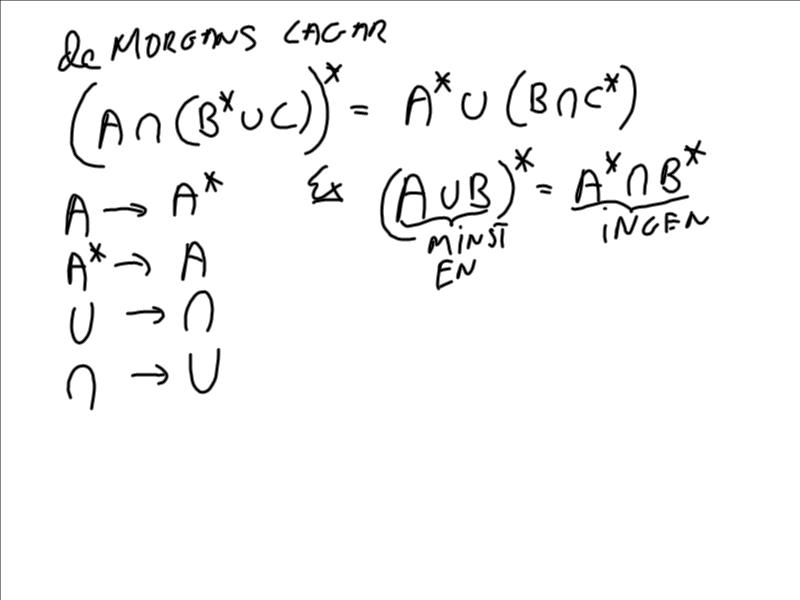 de MORGANS LAGAR
(A∩(B*∪C))* = A*∪(B∩C*)
A → A*
Ex (A∪B)* = A*∩B*
MINST EN
INGEN
A* → A
∪ → ∩
∩ → ∪